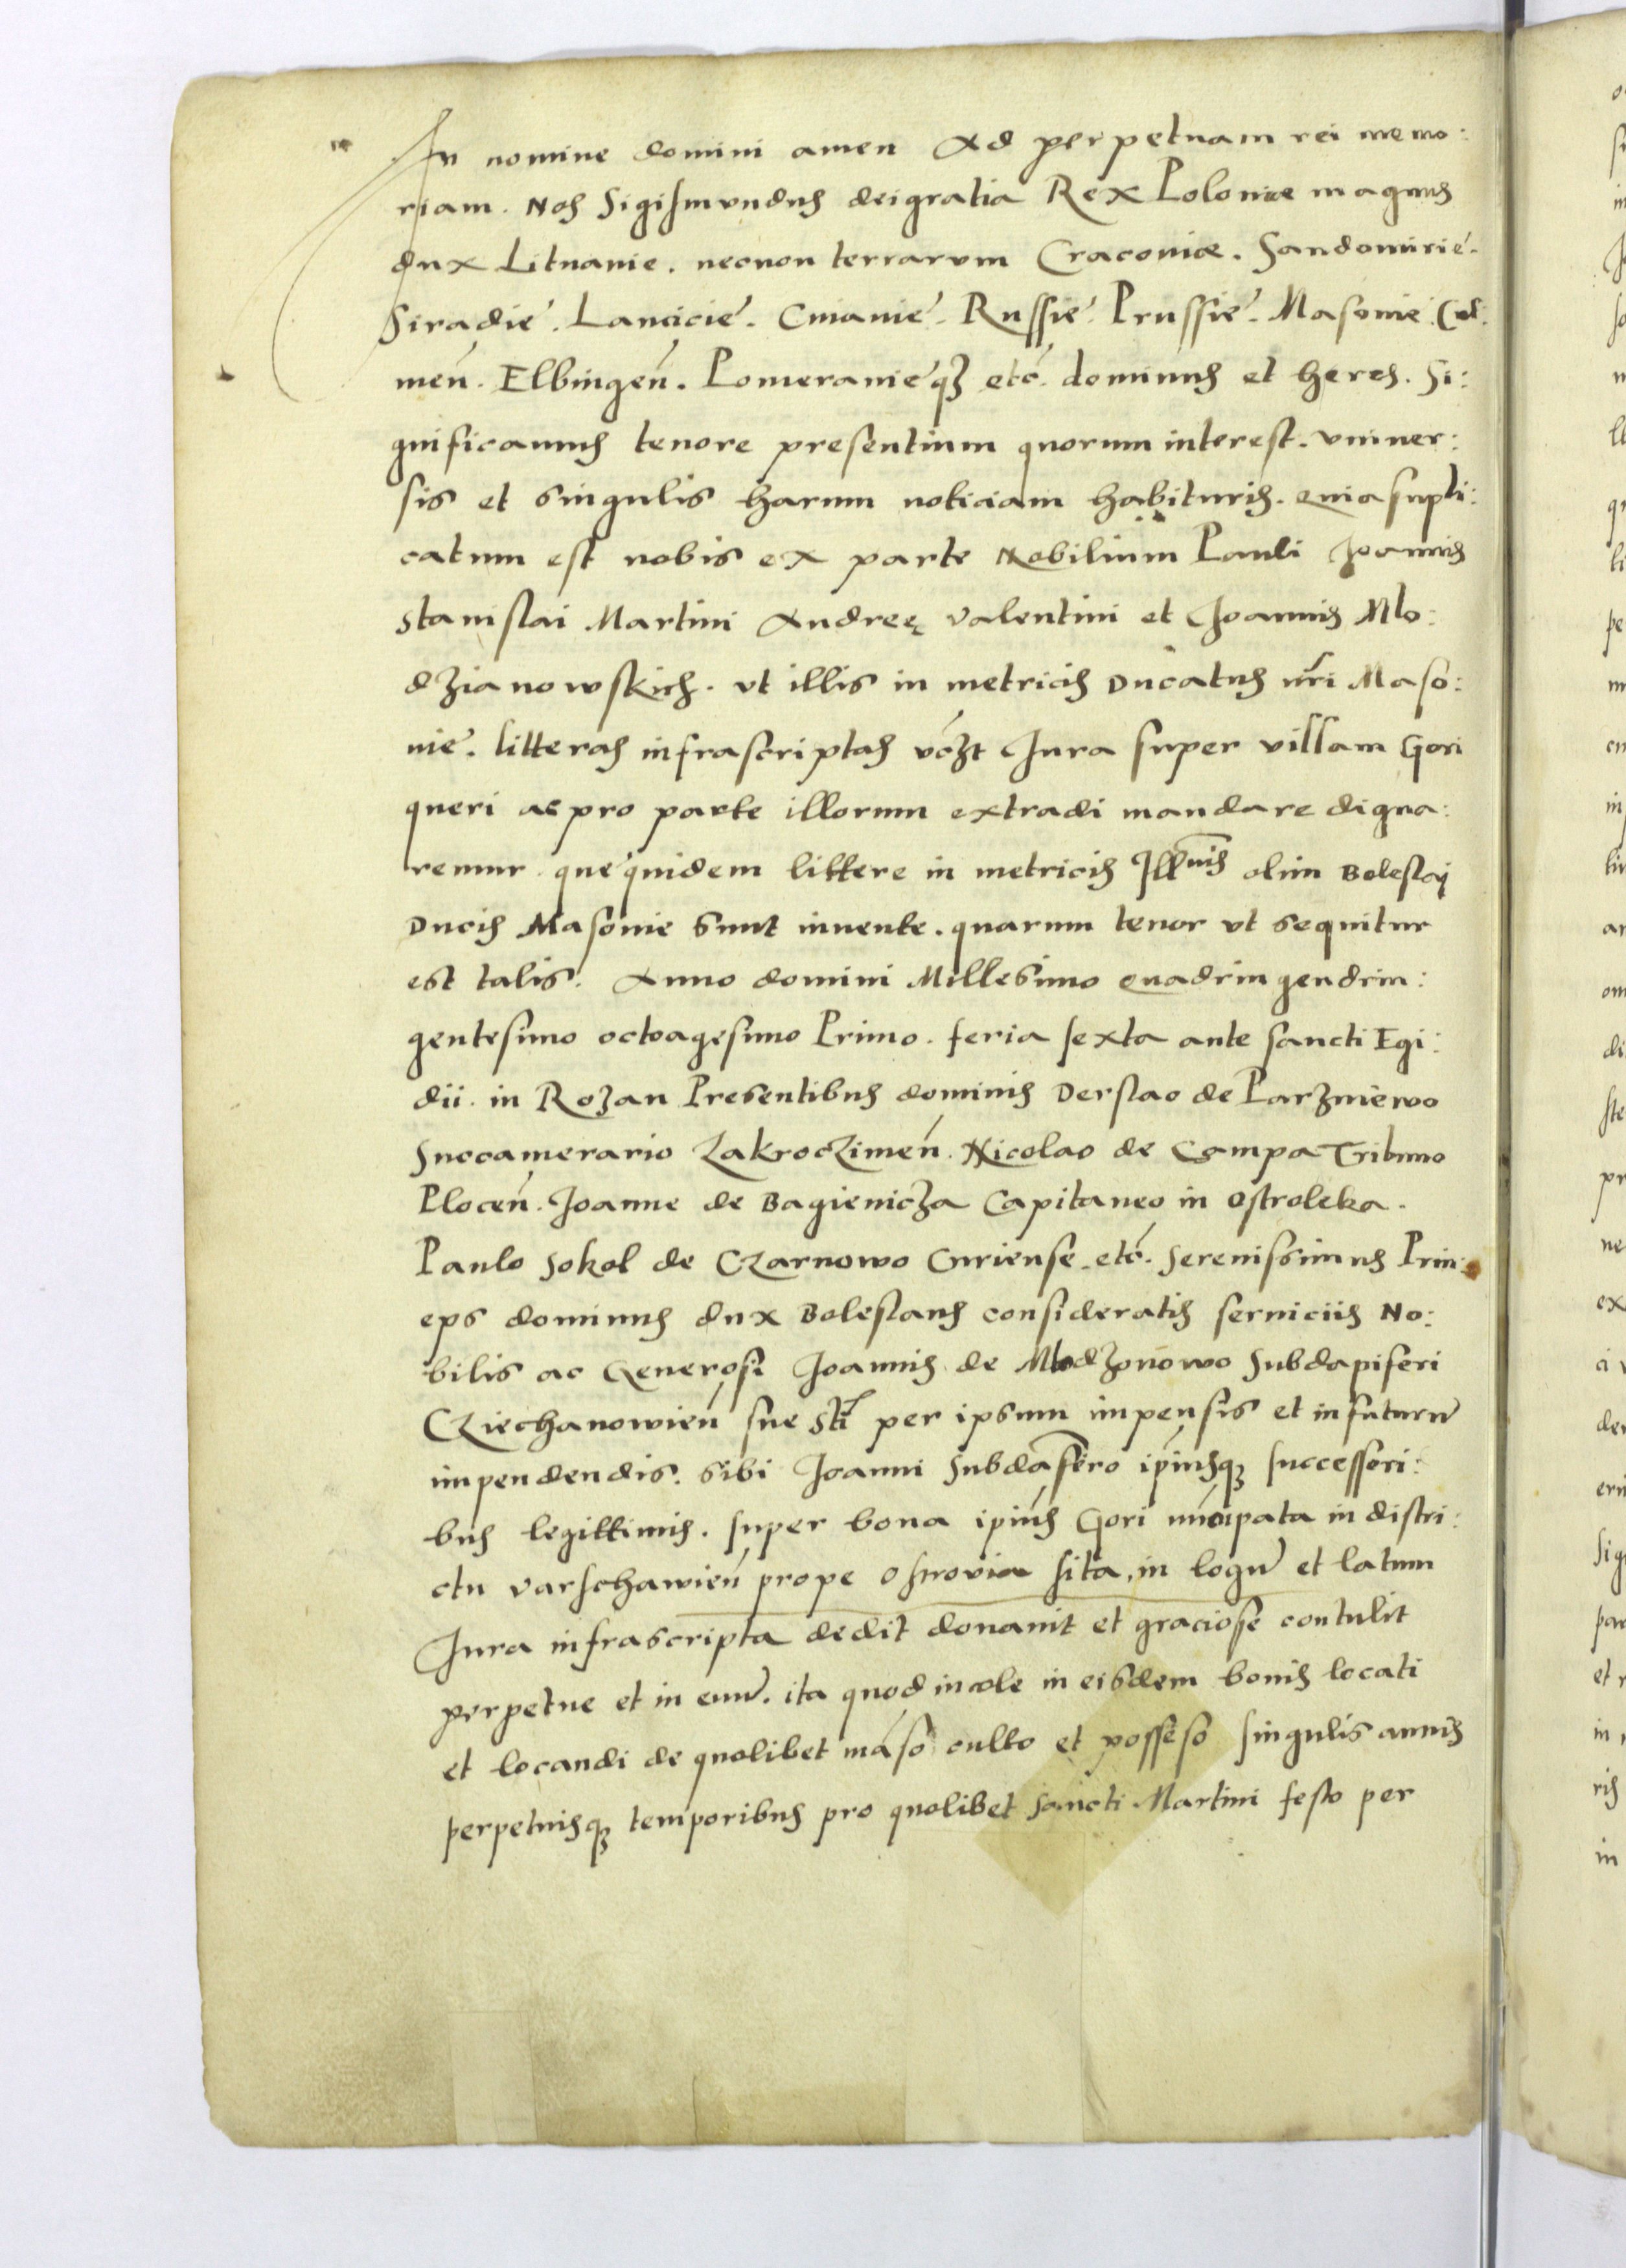 In nomine domini amen Ad perpetuam rei memo:
riam. Nos Sigismundus dei gratia Rex Poloniae magnus
dux Lituanie. necnon terrarum Cracoviae. Sandomirie.
Siradie. Lancicie. Cuiavie. Russie. Prussie. Masovie. Cul:
men̄. Elbingen̄. Pomeranieqꝫ etc̄. dominus et heres. Si:
gnificamus tenore presentium quorum interest. univer:
sis et singulis harum noticiam habituris. quia supli:
catum est nobis ex parte Nobilium Pauli Joannis
Stanislai Martini Andreę Valentini et Joannis Mlo:
dzianowskich. ut illis in metricis Ducatus nr̄i Maso:
vie. litteras infrascriptas vcꝫt Jura super villam Gori
queri ac pro parte illorum extradi mandare digna:
remur. que quidem littere in metricis Illmis olim Boleslai
Ducis Masovie sunt invente. quarum tenor ut sequitur
est talis. Anno domini Millesimo quadringendrin:
gentesimo octoagesimo Primo. feria sexta ante sancti Egi:
dii. in Rozan Presentibus dominis Derslao de Parzniewo
Succamerario Zakroczimen̄. Nicolao de Campa Tribuno
Plocen̄. Joanne de Bagienicza Capitaneo in Ostroleka.
Paulo Sokol de Czarnowo Curiense etc̄. Serenissimus Prin:
eps dominus dux Boleslaus consideratis serviciis No:
bilis ac Generosi Joannis de Mlodzonowo Subdapiferi
Cziechanowien̄ sue Sti per ipsum impensis et in futurū
impendendis. sibi Joanni Subdafero ip̄iusqꝫ successori:
bus legittimis. super bona ip̄ius Gori nūcipata in distri:
ctu varschawien̄ prope Osuovia sita, in logū et latum
Jura infrascripta dedit donavit et graciose contulit
perpetue et in evū. ita quod incole in eisdem bonis locati
et locandi de quolibet māso culto et possēso singulis annis
perpetuisqꝫ temporibus pro quolibet sancti Martini festo per